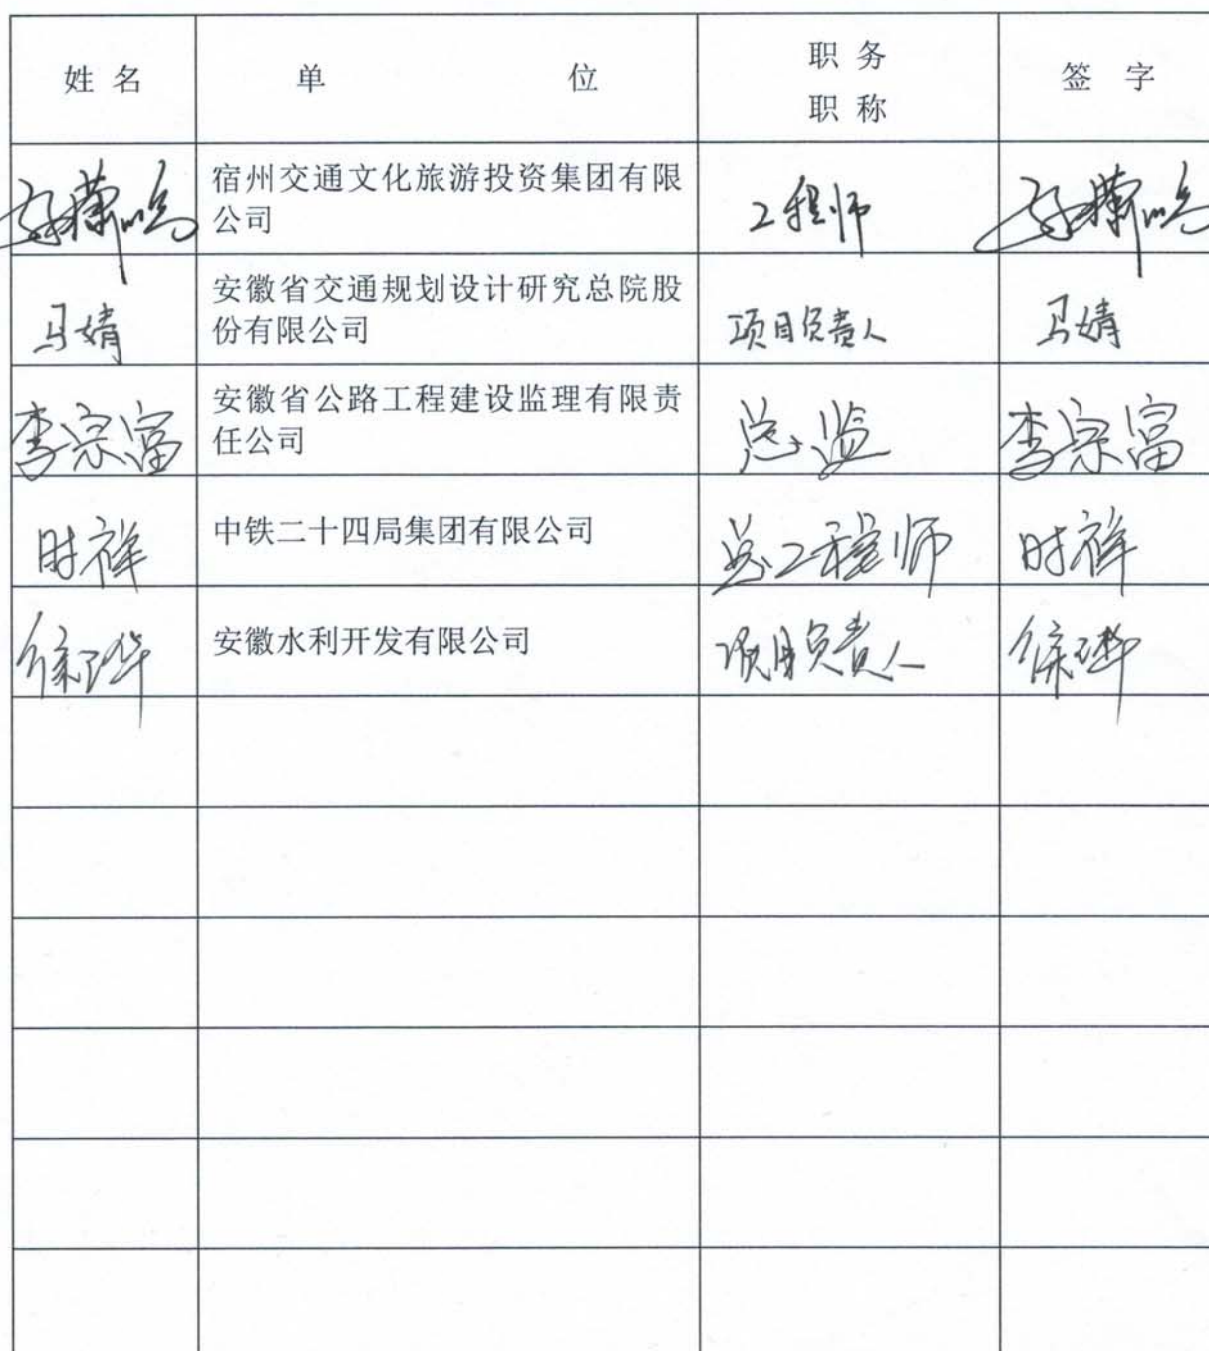 姓 名 单 位 职 务 签 字
职 称
宿州交通文化旅游投资集团有限 工程师
公司
安徽省交通规划设计研究总院股
份有限公司
马婧 项目负责人 马婧
安徽省公路工程建设监理有限责
任公司
李宗富 总监 李宗富
时祥 中铁二十四局集团有限公司 总工程师 时祥
徐 安徽水利开发有限公司 项目负责人 徐